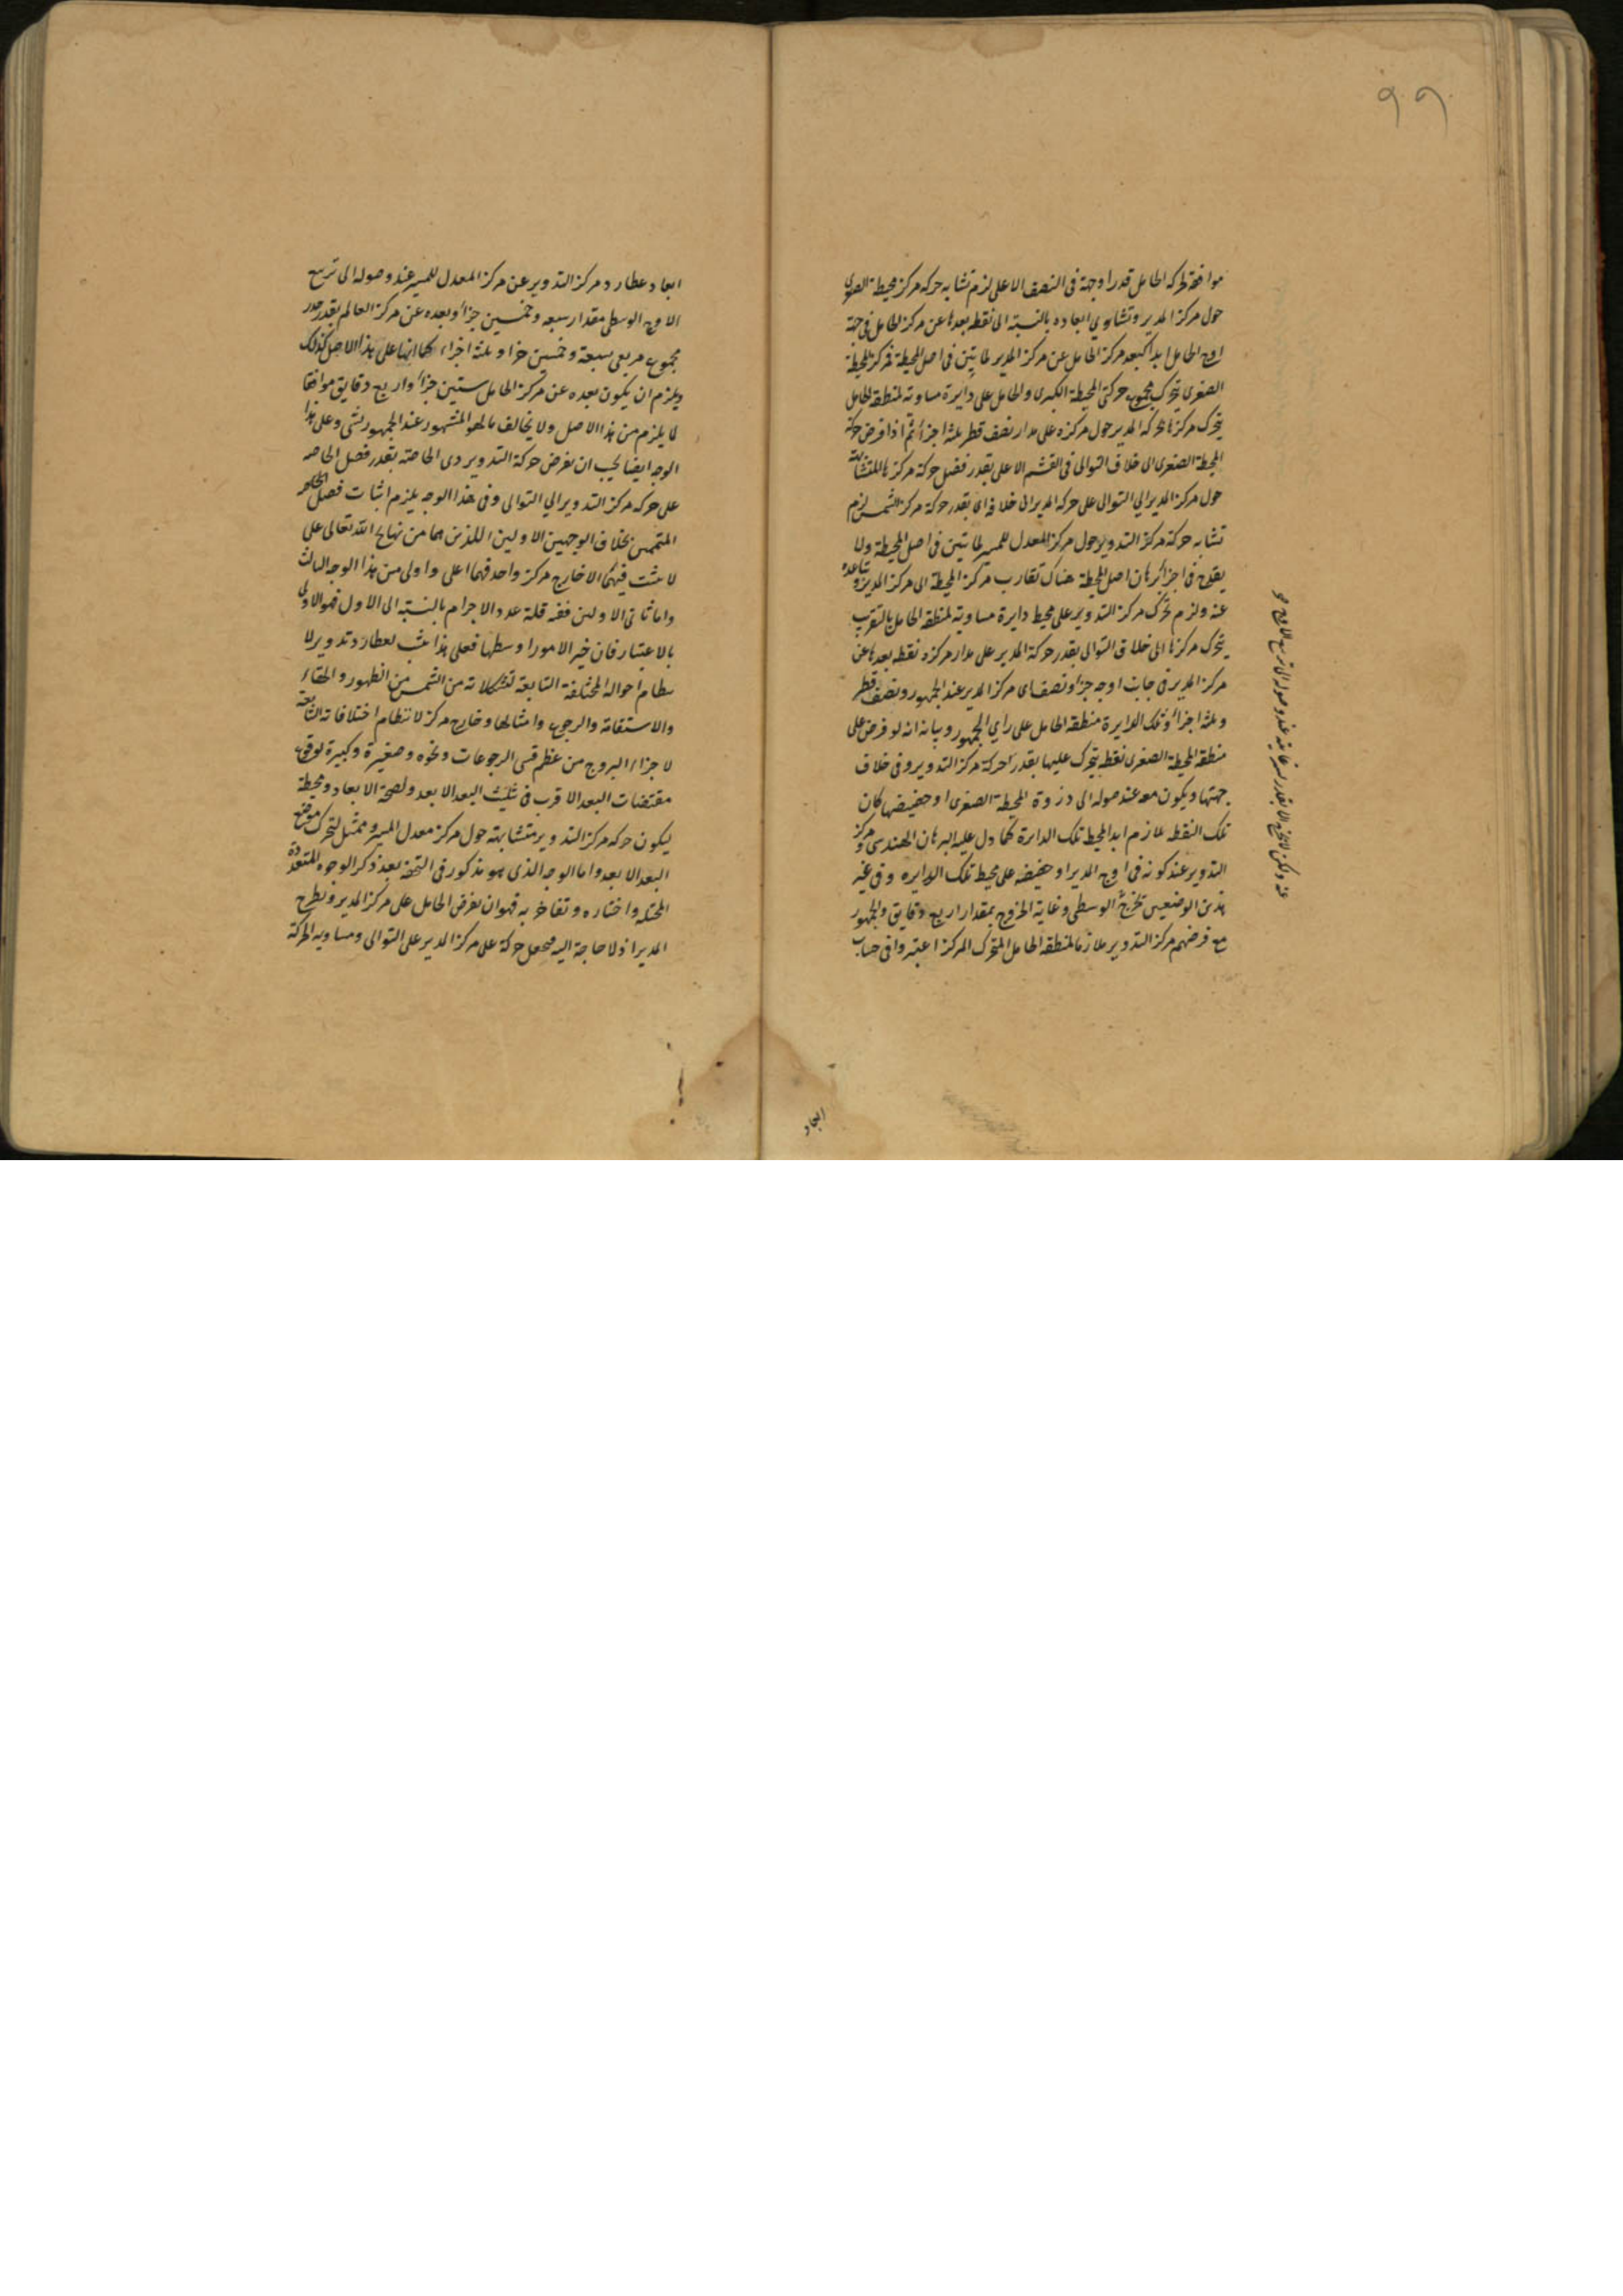 ٩٩
موافقة لحركة الحامل قدرا وجهة فى النصف الاعلى لزم تشابه حركة مركز محيطة الصغرى
حول مركز المدير وتشاوي ابعاده بالنسبة الى نقطة بعدها عن مركز الحامل فى جهة
اوج الحامل ابدا كبعد مركز الحامل عن مركز المدير لما تبين فى اصل المحيطة فمركز المحيطة
الصغرى يتحرك بمجموع حركتى المحيطة الكبرى والحامل على دايرة مساوية لمنطقة الحامل
يتحرك مركزها بحركة المدير حول مركزه على مدار نصف قطر ثلثة اجزاء ثم اذا فرض حركة
المحيطة الصغرى الى خلاف التوالى فى القسم الاعلى بقدر فضل حركة مركزها المتشابهة
حول مركز المدير الي التوالى على حركة المدير الى خلافه اى بقدر حركة مركز الشمس لزم
تشابه حركة مركز التدوير حول مركز المعدل للمسير لما تبين فى اصل المحيطة ولا
يقدح فى اجزا برهان اصل المحيطة هناك تقارب مركز المحيطة الى مركز المدير وتباعده
عنه ولزم تحرك مركز التدوير على محيط دايرة مساوية لمنطقة الحامل بالتقريب
يتحرك مركزها الى خلاف التوالى بقدر حركة المدير على مدار مركزه نقطة بعدها عن
مركز المدير فى جانب اوجه جزاو نصفاى مركز المدير عند الجمهور ونصف قطر
وثلثة اجزاء وتلك الدايرة منطقة الحامل على راي الجمهور وبيانه انه لو فرض على
منطقة المحيطة الصغرى نقطة يتحرك عليها بقدر حركة مركز التدوير وفى خلاف
جهتها ويكون معه عند صوله الى دزوة المحيطة الصغرى او حضيضها كان
تلك النقطة ملازم ابدا لمحيط تلك الدايرة كما دل عليه البرهان الهندسى ومركز
التدوير عند كونه فى اوج المدير او حضيضه على محيط تلك الدايره وفى غير
هذين الوضعين يخرج الوسطى وغاية الخروج بمقدار اربع دقايق والجمهور
مع فرضهم مركز التدوير ملازما لمنطقة الحامل المتحرك المركز اعتبروا فى حساب
عند وصوله الى تربيع الاوج
ابعاد
ابعاد عطارد مركز التدوير عن مركز المعدل للمسير عند وصوله الى تربيع
الاوج الوسطى مقدار سبعه وخمسين جزاو بعده عن مركز العالم بقدر جذر
مجموع مربعى سبعة وخمسين جزا وثلثة اجزاء كما انها على هذا الاصل كذلك
ويلزم ان يكون بعده عن مركز الحامل ستين جزأ واربع دقايق موافقا
لا يلزم من هذا الاصل ولا يخالف ما هو المشهور عند الجمهور بشى وعلى هذا
الوجه ايضا يجب ان يفرض حركة التدوير دى الخاصة بقدر فضل الخاصه
على حركة مركز التدوير الي التوالى وفى هذا الوجه يلزم اثبات فصل
المتممين بخلاف الوجهين الاولين اللذين هما من نهاج الله تعالى على
لا يثبت فيهما الا خارج مركز واحد فهما اعلى واولى من هذا الوجه الثالث
واما ثانى الاولين ففيه قلة عدد الاجرام بالنسبة الى الاول فهو الاولى
بالاعتبار فان خير الامور اوسطها فعلى هذا يثبت لعطارد تدوير لا
نتظام احواله المختلفة التابعة لتشكلاته من الشمس من الظهور والخفاء
والاستقامة والرجوع وامثالها وخارج مركز لانتظام اختلافاته التابعة
لاجزاء البروج من عظم قسى الرجوعات ونحوه وصغيرة وكبيرة لوقوع
مقتضيات البعد الاقرب فى تثليث البعد الابعد ولصحة الابعاد ومحيطة
ليكون حركة مركز التدوير متشابهة حول مركز معدل المسير وممثل لتحرك موضع
البعد الابعد واما الوجه الذى هو مذكور فى التحفة بعد ذكر الوجوه المتعددة
المختلة واختاره وتفاخر به فهو ان يفرض الحامل على مركز المدير ويطرح
المدير اذ لا حاجة اليه فيجعل حركة على مركز المدير على التوالى ومساويه لحركة